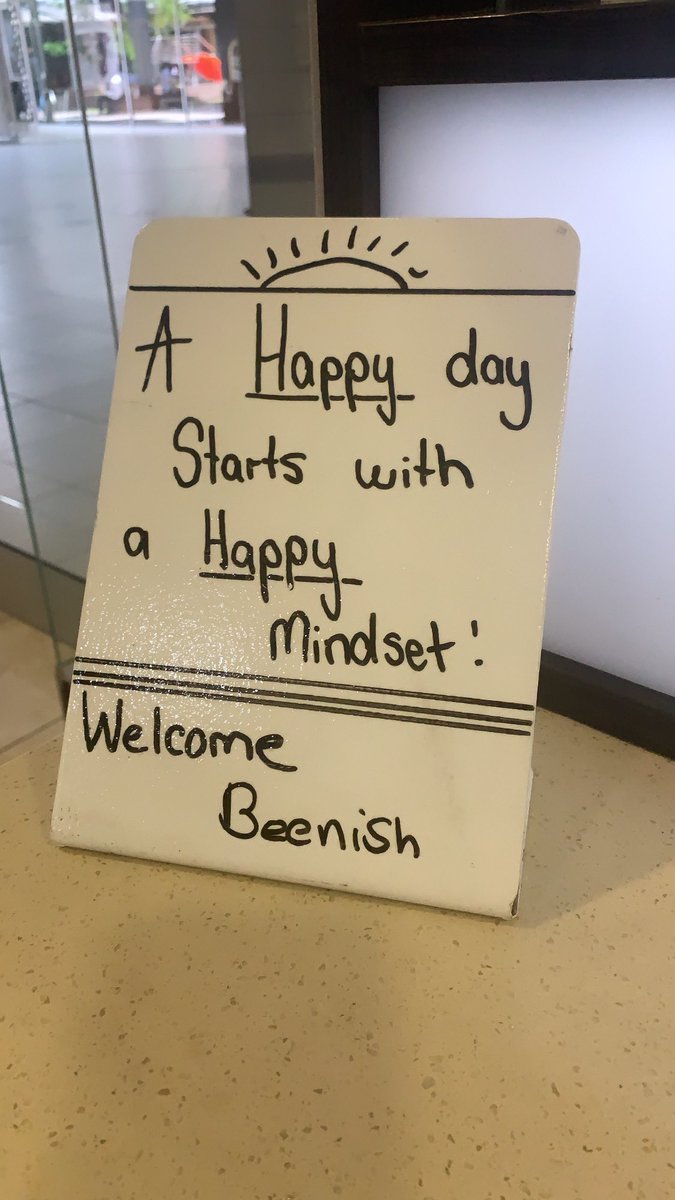 A Happy day
Starts with
a Happy
Mindset!
Welcome
Beenish